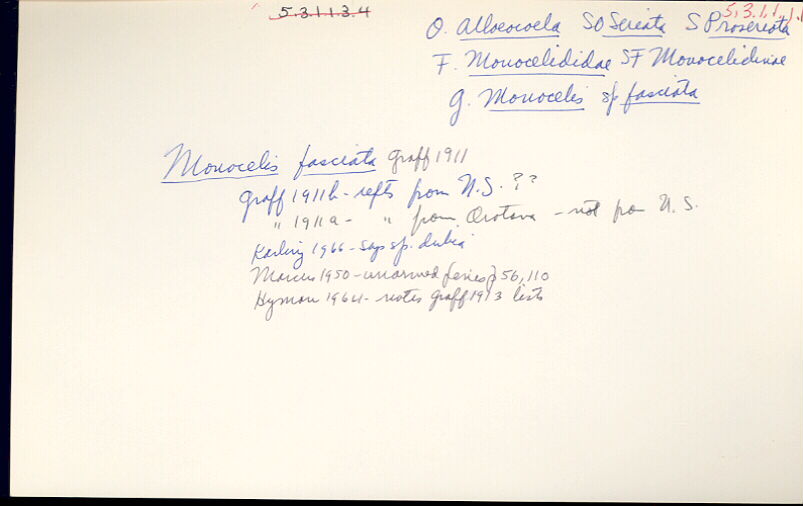 5.3.1.1.3.4
5.3.1.1.
O. Alloeocoela SO Seriata S Proseriata
F. Monocelididae SF Monocelidinae
g. Monocelis sp fasciata
Monocelis fasciata Graff 1911
Graff 1911b - refts from N.S. ??
" 1911a - " from Orotava - not from N.S.
Karling 1966 - says sp. dubia
Marcus 1950 - unarmed penis p 56, 110
Hyman 1964 - notes Graff 1913 lists